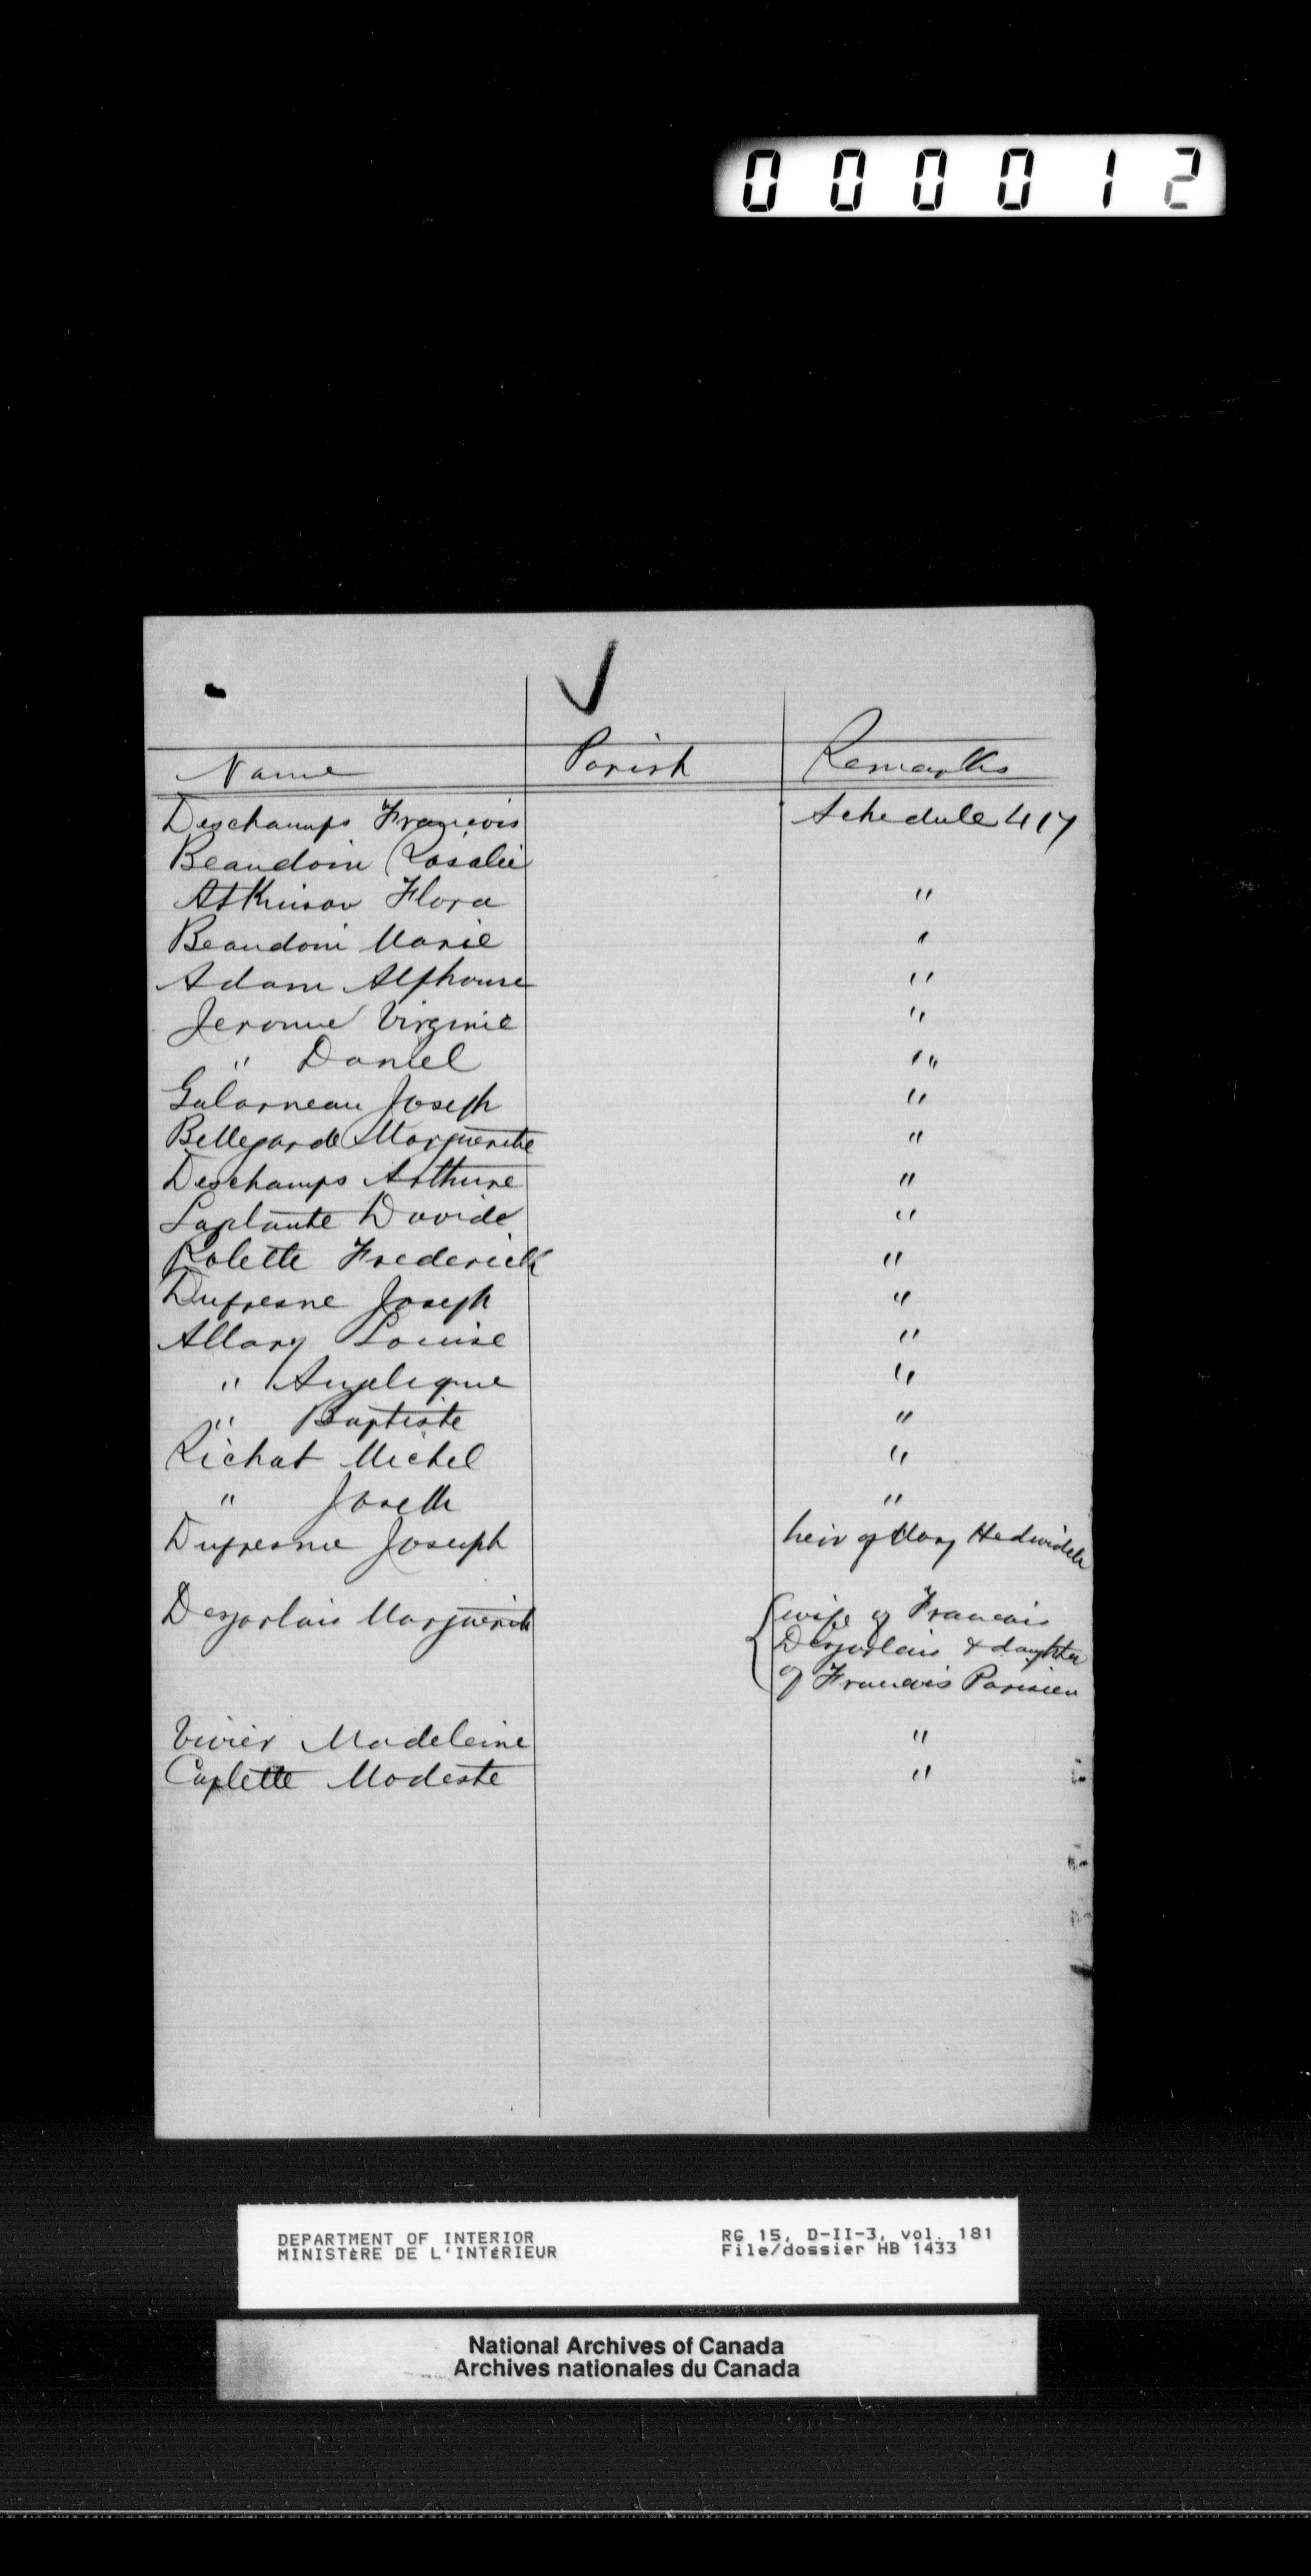 000012
Name Parish Remarks
Deschamps Francois Schedule 417
Beaudoin Rosalie
Atkinson Flora "
Beaudoin Marie "
Adam Alphonse "
Jerome Virginie "
" Daniel "
Galarneau Joseph "
Bellegarde Marguerite "
Deschamps Arthure "
Laplante Davide "
Rolette Frederick "
Dufresne Joseph "
Allary Louise "
" Angelique "
" Baptiste "
Richat Michel "
" Joseth "
Dufresne Joseph heir of Mary
Desjarlais Marguerite wife of Francois
Desjarlais & daughter
of Francois Parisien
Vivier Madeleine "
Caplette Modeste "
DEPARTMENT OF INTERIOR RG 15, D-II-3, vol. 181
MINISTÈRE DE L'INTÉRIEUR File/dossier HB 1433
National Archives of Canada
Archives nationales du Canada